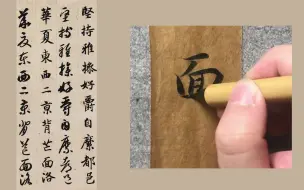 堅持雅操好爵自縻都邑
堅持雅操好爵自縻都邑
華夏東西二京背芒面洛
華夏東西二京背芒面洛
面